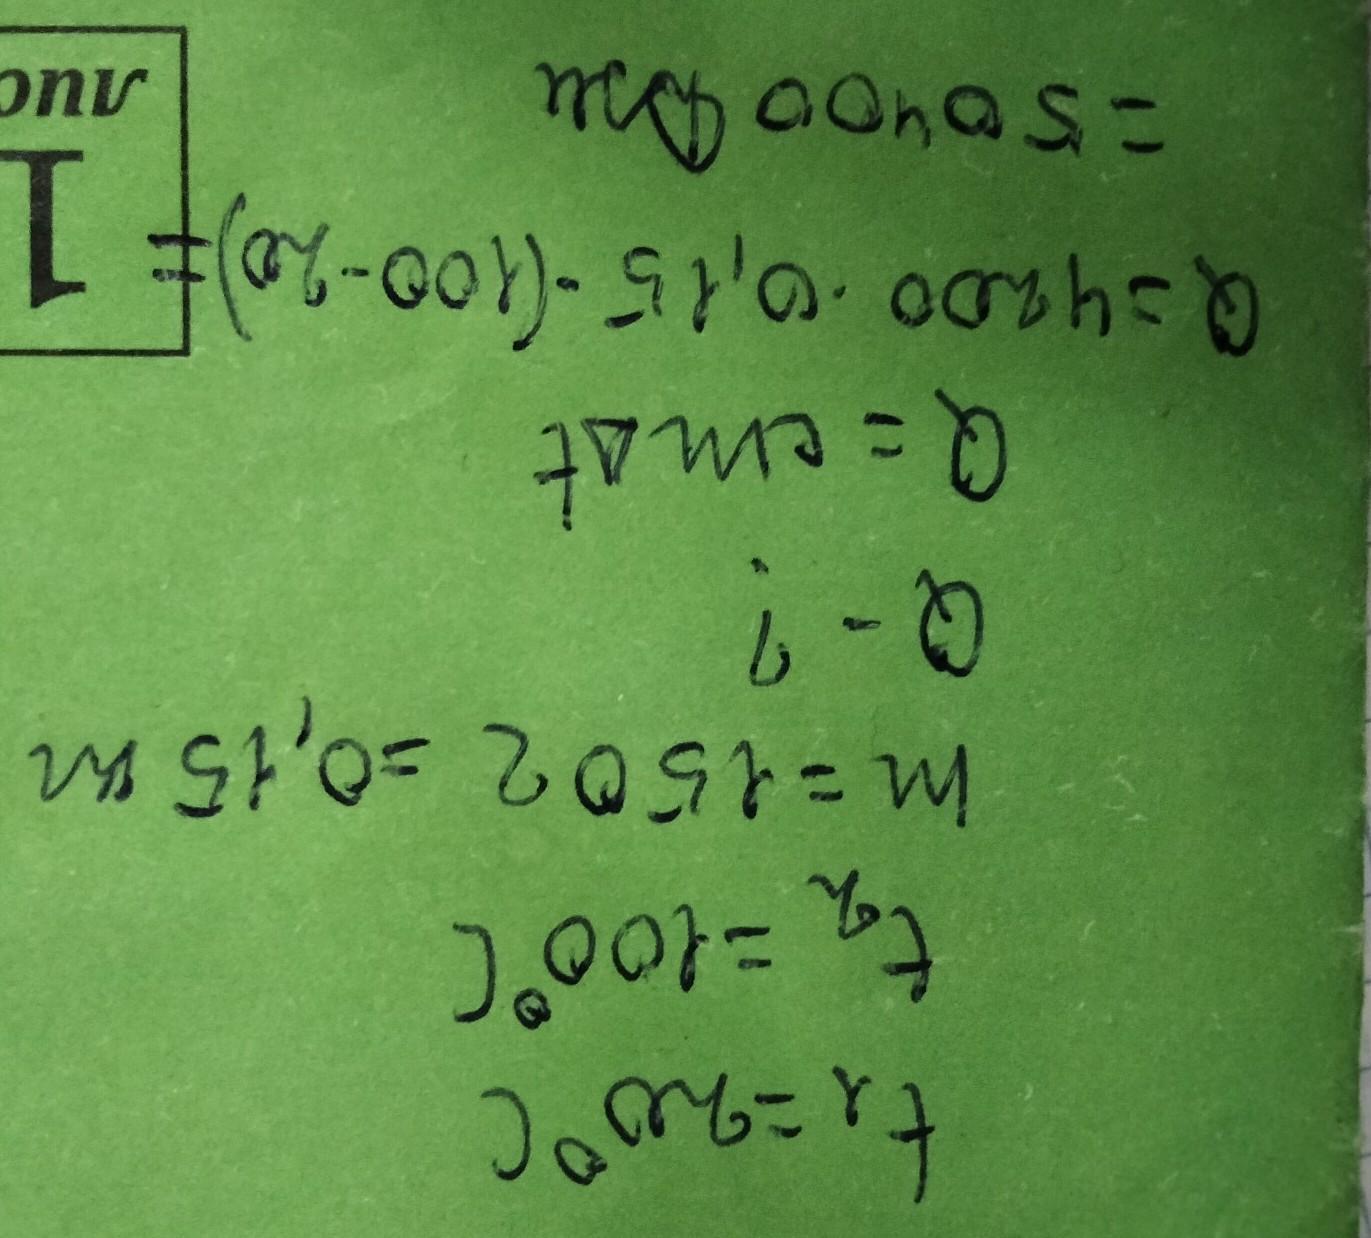 t₁ = 20°C
t₂ = 100°C
m = 150 г = 0,15 кг
Q - ?
Q = cmΔt
Q = 4200 · 0,15 · (100 - 20) =
= 50400 Дж
1